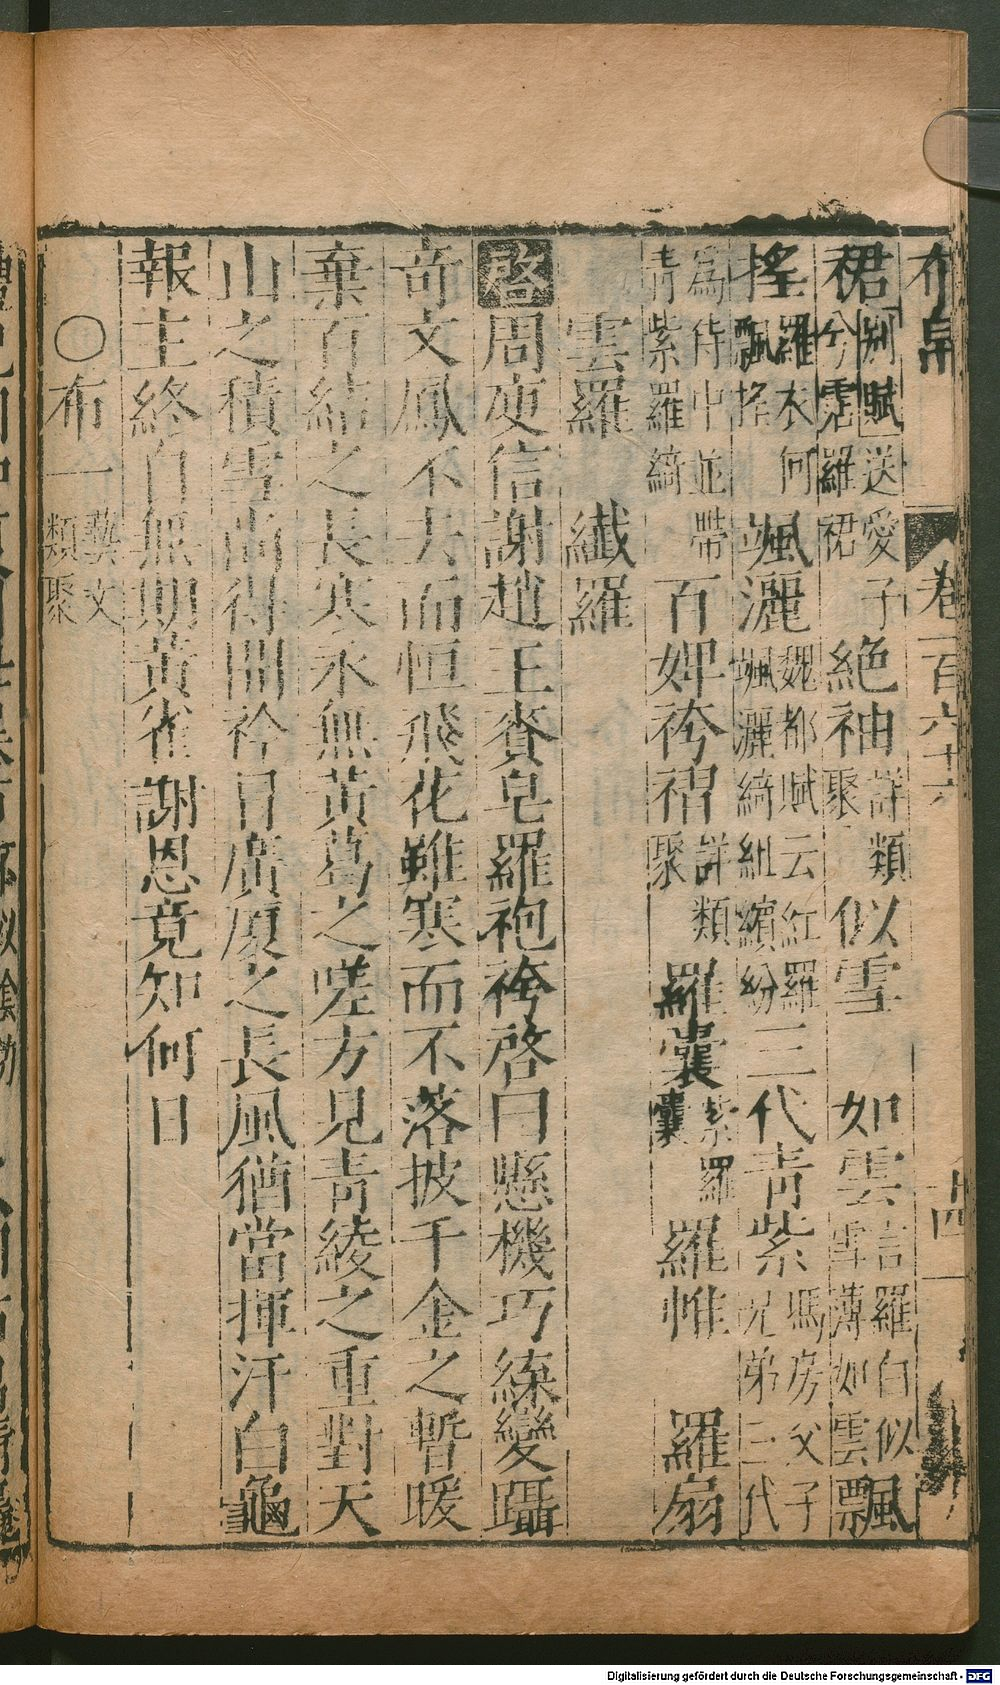 布帛 卷百六十六 十四
裙別賦送愛子兮霑羅裙 絕袖詳類聚 似雪 如雲言羅白似雪薄如雲 飄
搖羅衣何飄搖 颯灑魏都賦云紅羅颯灑綺組繽紛 三代青紫馮房父子兄弟三代
為侍中並帶青紫羅綺 百婢袴褶詳類聚 羅囊紫羅囊 羅帷 羅扇
雲羅 纖羅
啓周庾信謝趙王賚皂羅袍袴啓曰懸機巧緤變躡
奇文鳳不去而恒飛花雖寒而不落披千金之暫暖
棄百結之長寒永無黃葛之嗟方見青綾之重對天
山之積雪尚得開衿冒廣廈之長風猶當揮汗白龜
報主終自無期黃雀謝恩竟知何日
○布一藝文類聚
Digitalisierung gefördert durch die Deutsche Forschungsgemeinschaft - DFG